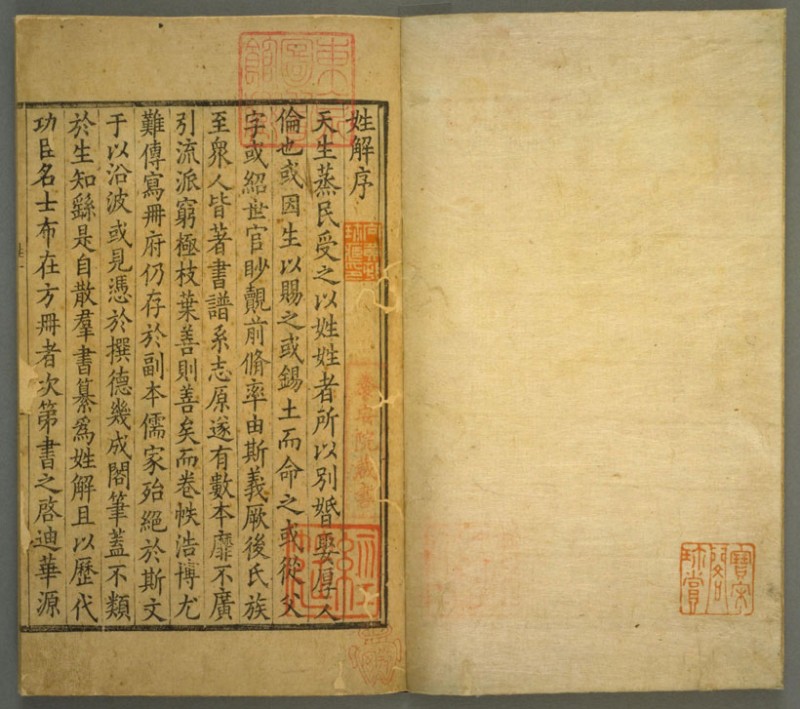 寶宋閣珍賞
姓解序
養安院藏書
天生蒸民受之以姓姓者所以別婚娶厚人
倫也或因生以賜之或錫土而命之或從父
字或紹世官眇覿前脩率由斯義厥後氏族
至衆人皆著書譜系志原遂有數本靡不廣
引流派窮極枝葉善則善矣而卷帙浩博尤
難傳寫冊府仍存於副本儒家殆絕於斯文
于以沿波或見憑於撰德幾成閣筆蓋不類
於生知繇是自散羣書纂爲姓解且以歷代
功臣名士布在方冊者次第書之啓迪華源